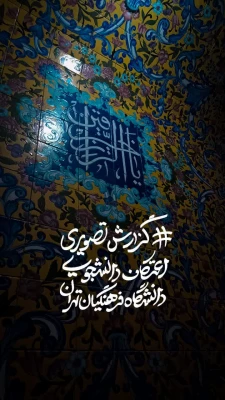 #گزارش تصویری
اعتکاف دانشجویی
دانشگاه فرهنگیان تهران